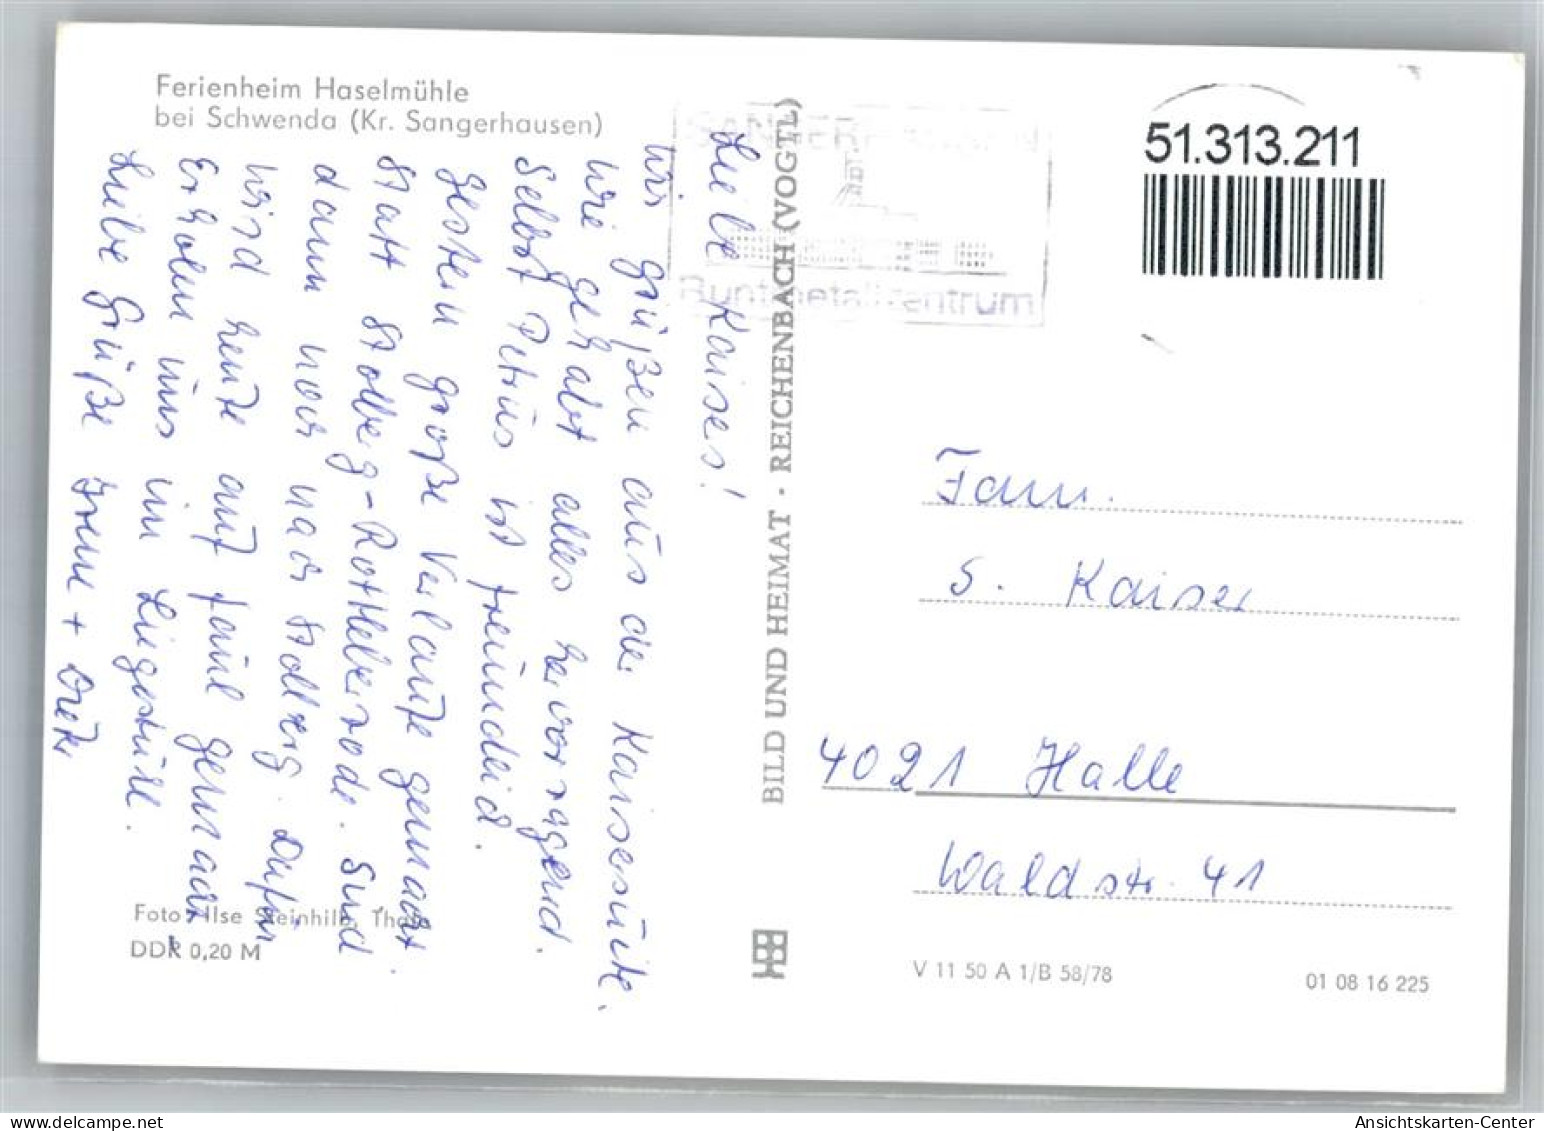 Ferienheim Haselmühle
bei Schwenda (Kr. Sangerhausen)
Liebe Kaisers!
Wir grüßen aus der Kaisersuite.
Wie gehabt alles hervorragend.
Selbst Petrus ist freundlich.
Gestern große Verlaufe gemacht.
Statt Stolberg-Rottleberode. Sind
dann noch nach Stolberg. Dafür
wird heute auf faul gemacht
Erholen uns im Liegestuhl.
Liebe Grüße Irene +
SANGERHAUSEN
Buntmetallzentrum
BILD UND HEIMAT · REICHENBACH (VOGTL)
51.313.211
Fam.
S. Kaiser
4021 Halle
Waldstr. 41
Foto: Ilse Steinhilb, Thale
DDR 0,20 M
V 11 50 A 1/B 58/78
01 08 16 225
www.delcampe.net
Ansichtskarten-Center